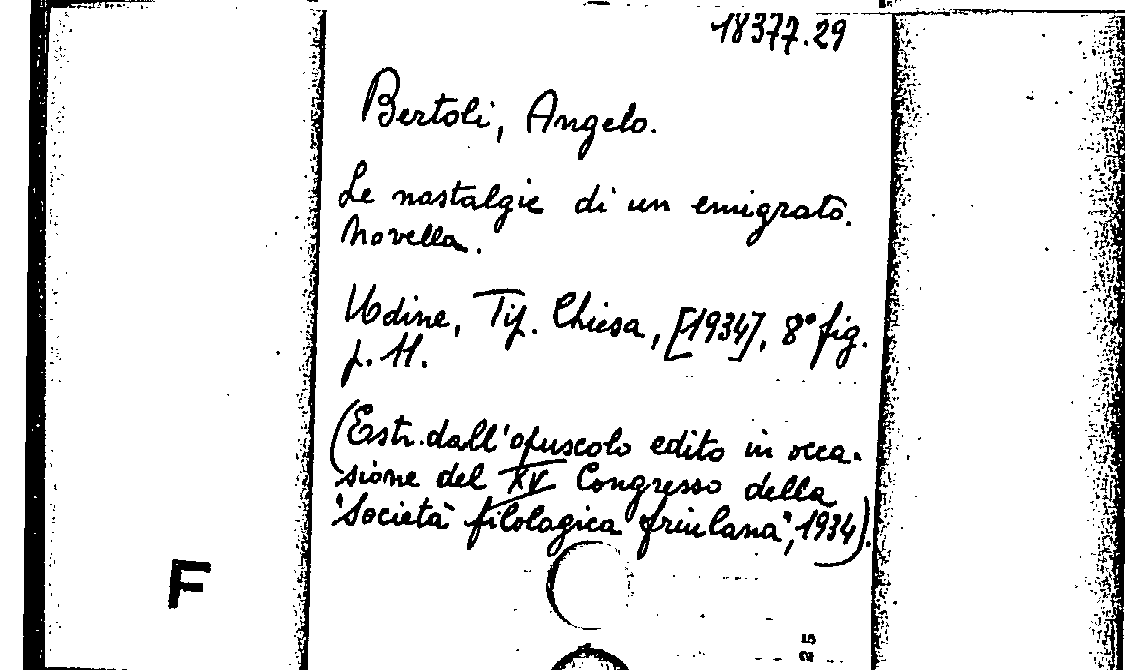 18377.29
Bertoli, Angelo.
Le nostalgie di un emigrato.
Novella.
Udine, Tip. Chiesa, [1934], 8° fig.
p. 11.
(Estr. dall'opuscolo edito in occa-
sione del XV Congresso della
"Società filologica friulana", 1934).
F